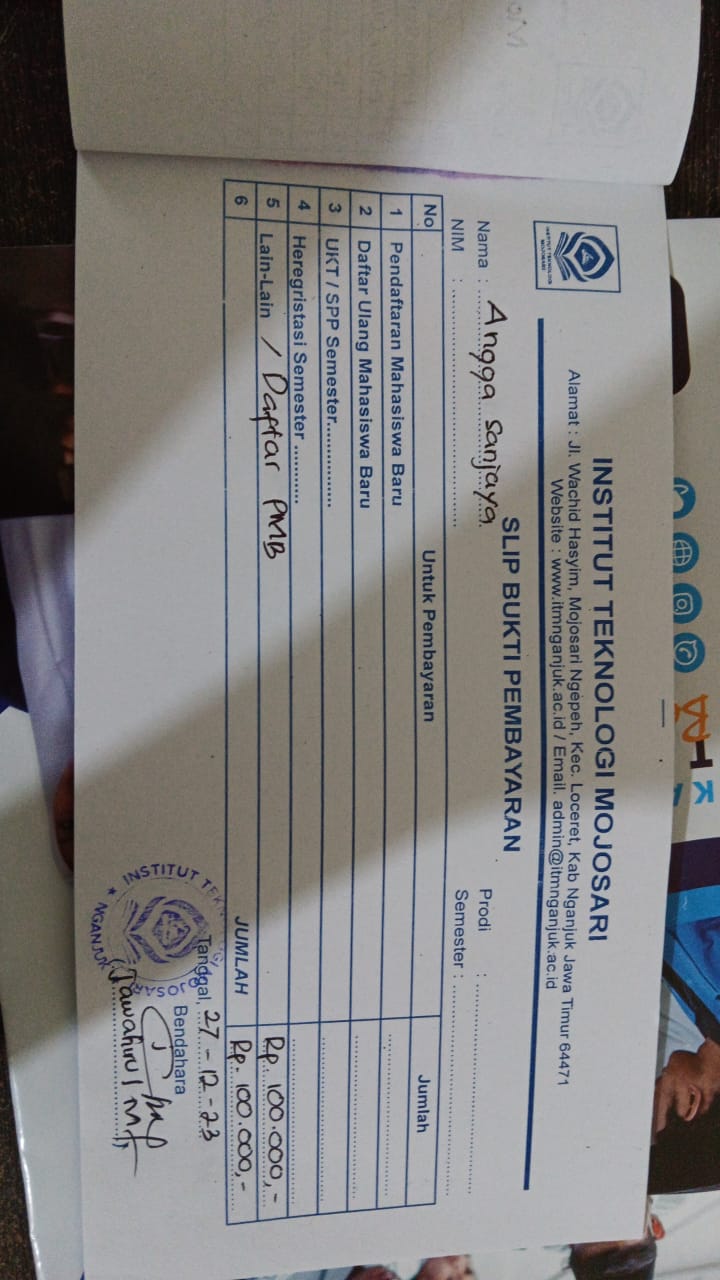 INSTITUT TEKNOLOGI MOJOSARI
Alamat : Jl. Wachid Hasyim, Mojosari Ngepeh, Kec. Loceret, Kab Nganjuk Jawa Timur 64471
Website : www.itmnganjuk.ac.id / Email. admin@itmnganjuk.ac.id
INSTITUT TEKNOLOGI
MOJOSARI
SLIP BUKTI PEMBAYARAN
Nama : Angga Sanjaya Prodi :
NIM : Semester :
No Untuk Pembayaran Jumlah
1 Pendaftaran Mahasiswa Baru
2 Daftar Ulang Mahasiswa Baru
3 UKT / SPP Semester
4 Heregristasi Semester
5 Lain-Lain / Daftar PMB Rp. 100.000,-
6 JUMLAH Rp. 100.000,-
Tanggal, 27-12-23
Bendahara
INSTITUT TEKNOLOGI MOJOSARI
NGANJUK